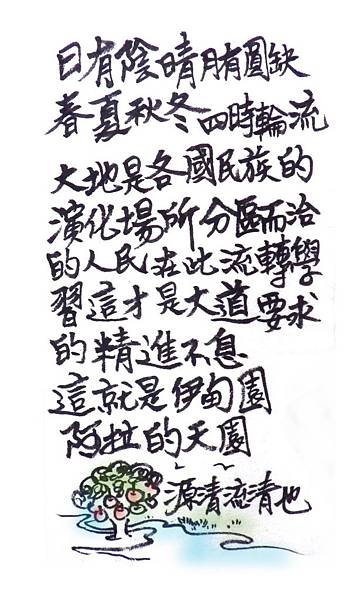 日有陰晴月有圓缺
春夏秋冬四時輪流
大地是各國民族的
演化場所分區而治
的人民在此流轉學
習這才是大道要求
的精進不息
這就是伊甸園
阿拉的天園
源清流清也